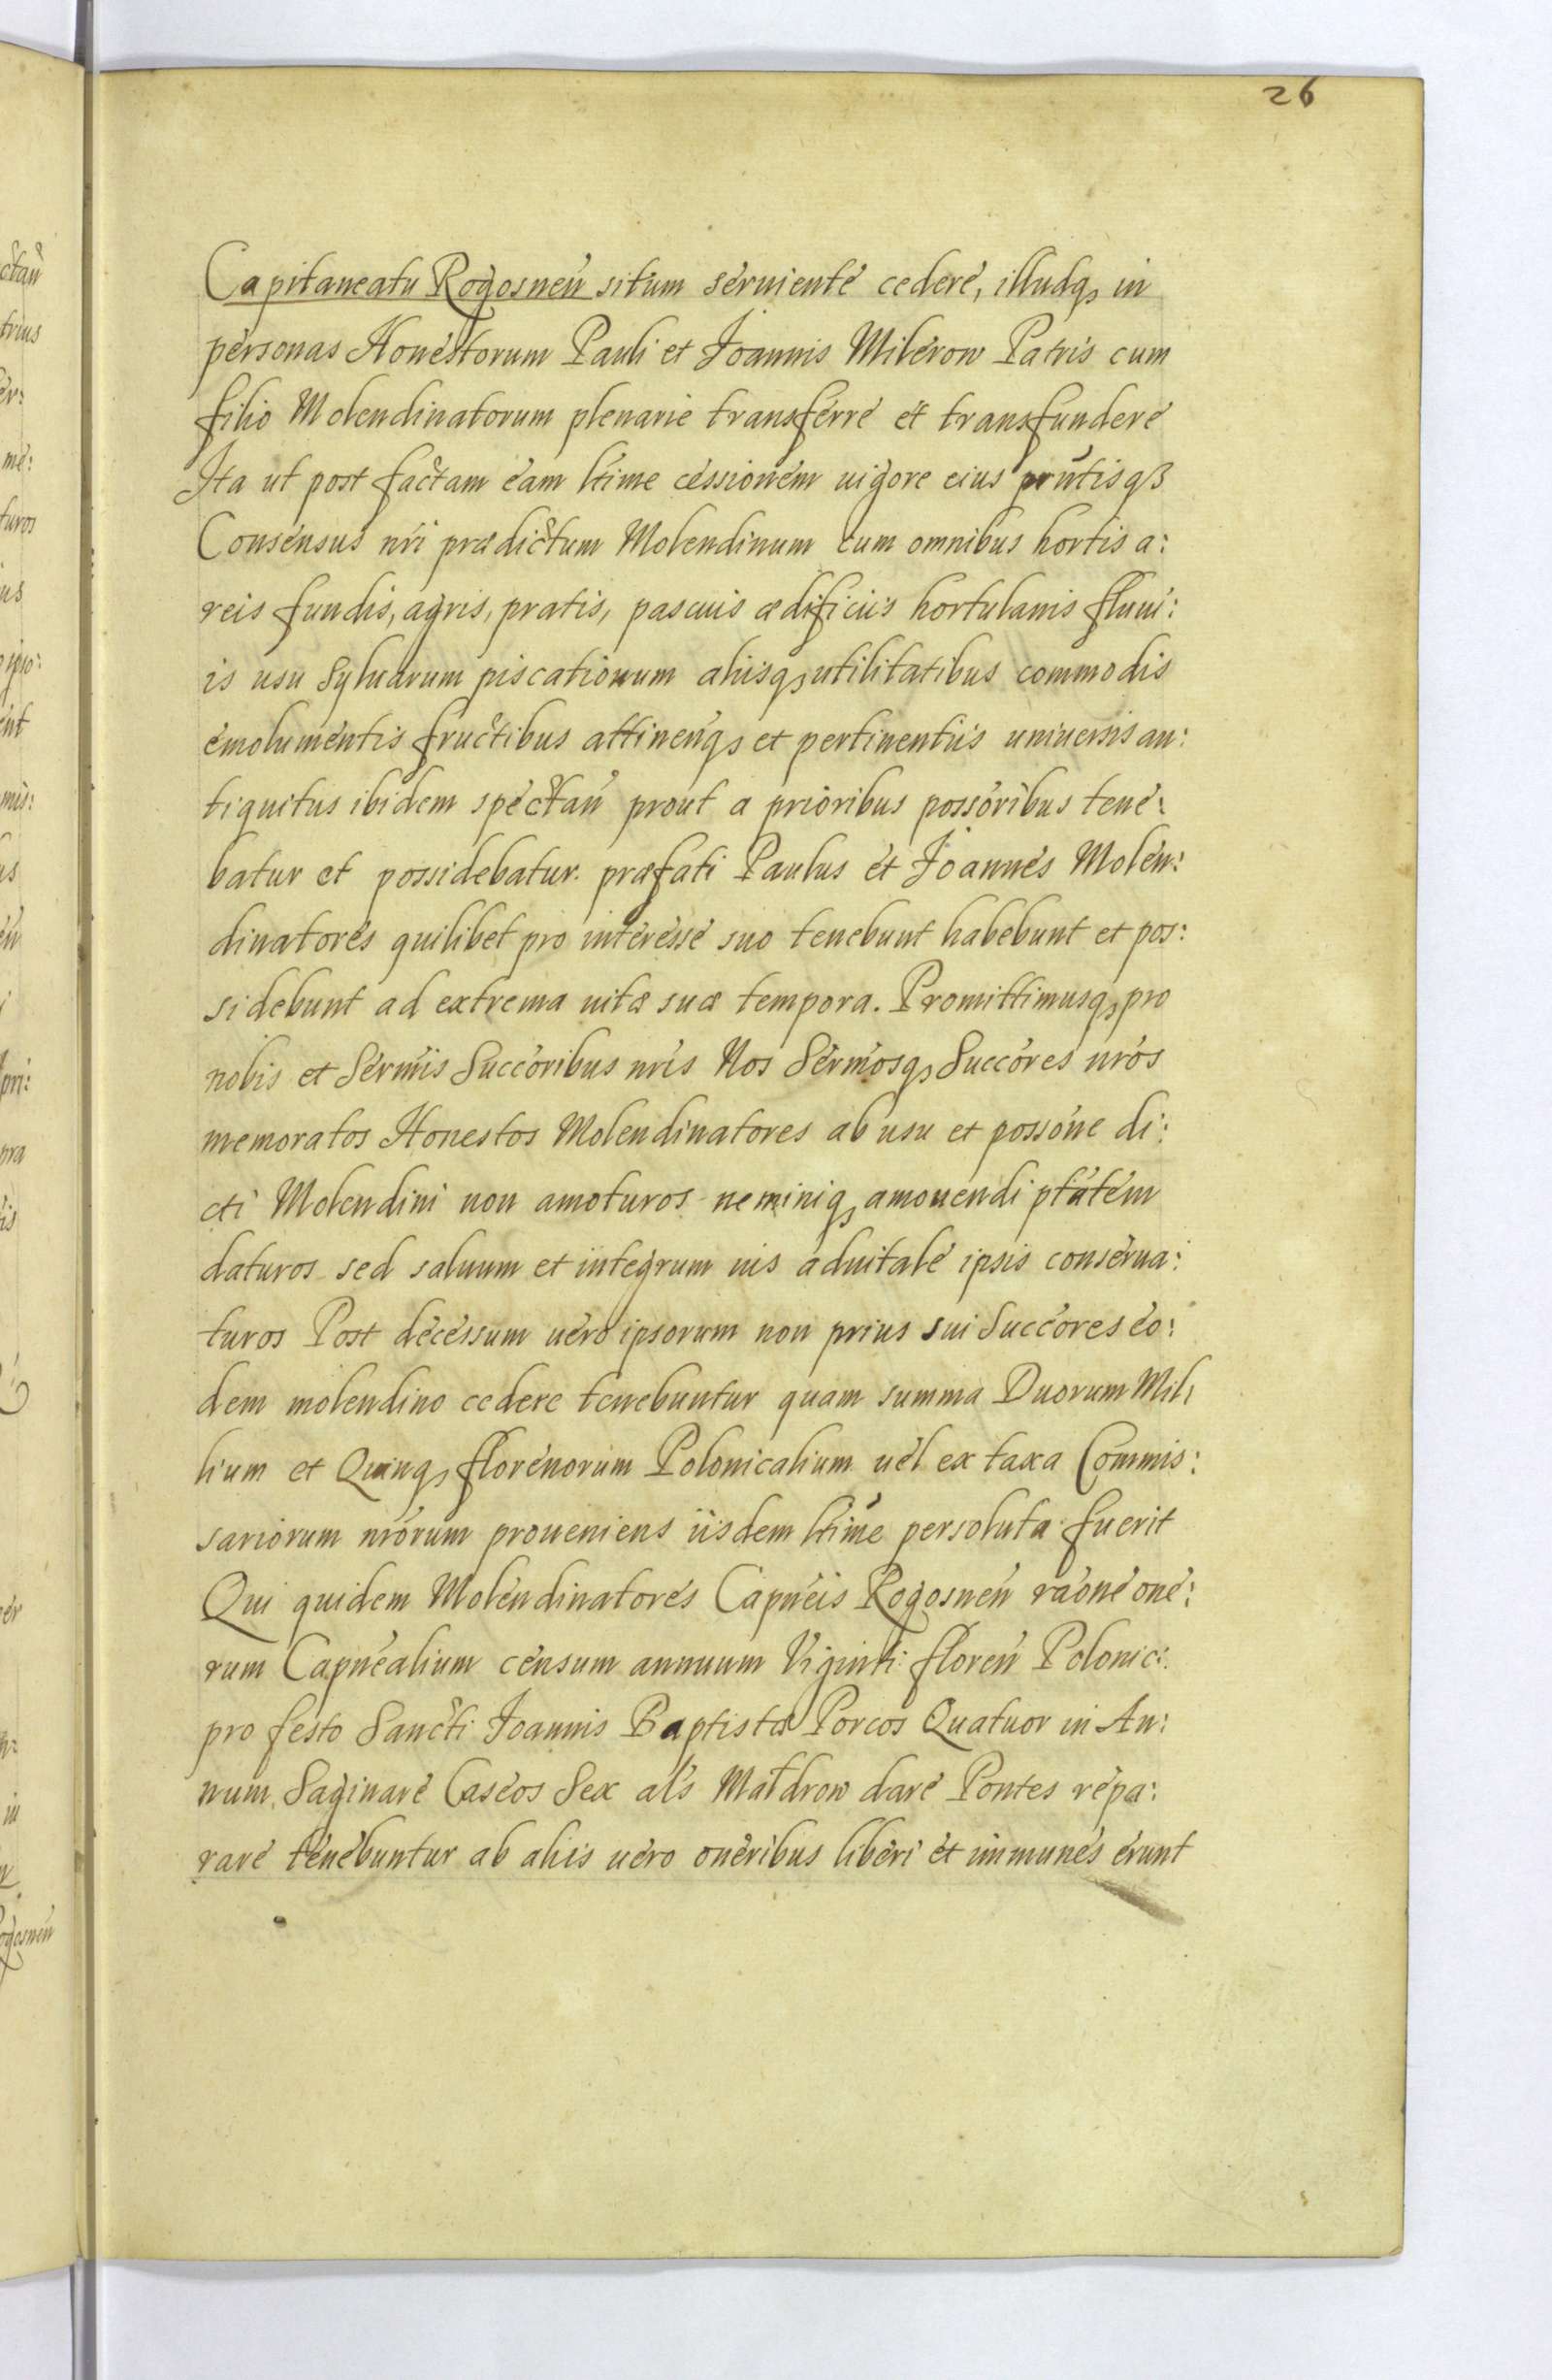 26
Capitaneatu Rogosneń situm seruiente cedere, illudq₃ in
personas Honestorum Pauli et Joannis Milerow Patris cum
filio Molendinatorum plenarie transferre et transfundere
Ita ut post factam eam ltime cessionem uigore eius prntisqꝫ
Consensus nri prædictum Molendinum cum omnibus hortis a:
reis fundis, agris, pratis, pascuis ædificiis hortulanis fluui:
is usu Syluarum piscationum aliisq₃ utilitatibus commodis
emolumentis fructibus attineńq₃ et pertinentiis uniuersis an:
tiquitus ibidem spectań prout a prioribus possoribus tene:
batur et possidebatur. præfati Paulus et Joannes Molen:
dinatores quilibet pro interesse suo tenebunt habebunt et pos:
sidebunt ad extrema uitæ suæ tempora. Promittimusq₃ pro
nobis et Sermis Succoribus nris Nos Sermosq₃ Succores nros
memoratos Honestos Molendinatores ab usu et possone di:
cti Molendini non amoturos neminiq₃ amouendi ptatem
daturos sed saluum et integrum ius aduitale ipsis conserua:
turos Post decessum uero ipsorum non prius sui Succores eo:
dem molendino cedere tenebuntur quam summa Duorum Mil,
lium et Quinq₃ florenorum Polonicalium uel ex taxa Commis:
sariorum nrorum proueniens iisdem ltime persoluta fuerit
Qui quidem Molendinatores Capneis Rogosneń raone one:
rum Capnealium censum annuum Viginti floreń Polonic:
pro festo Sancti Joannis Baptistæ Porcos Quatuor in An:
num Saginare Caseos Sex als Matdrow dare Pontes repa:
rare tenebuntur ab aliis uero oneribus liberi et immunes erunt